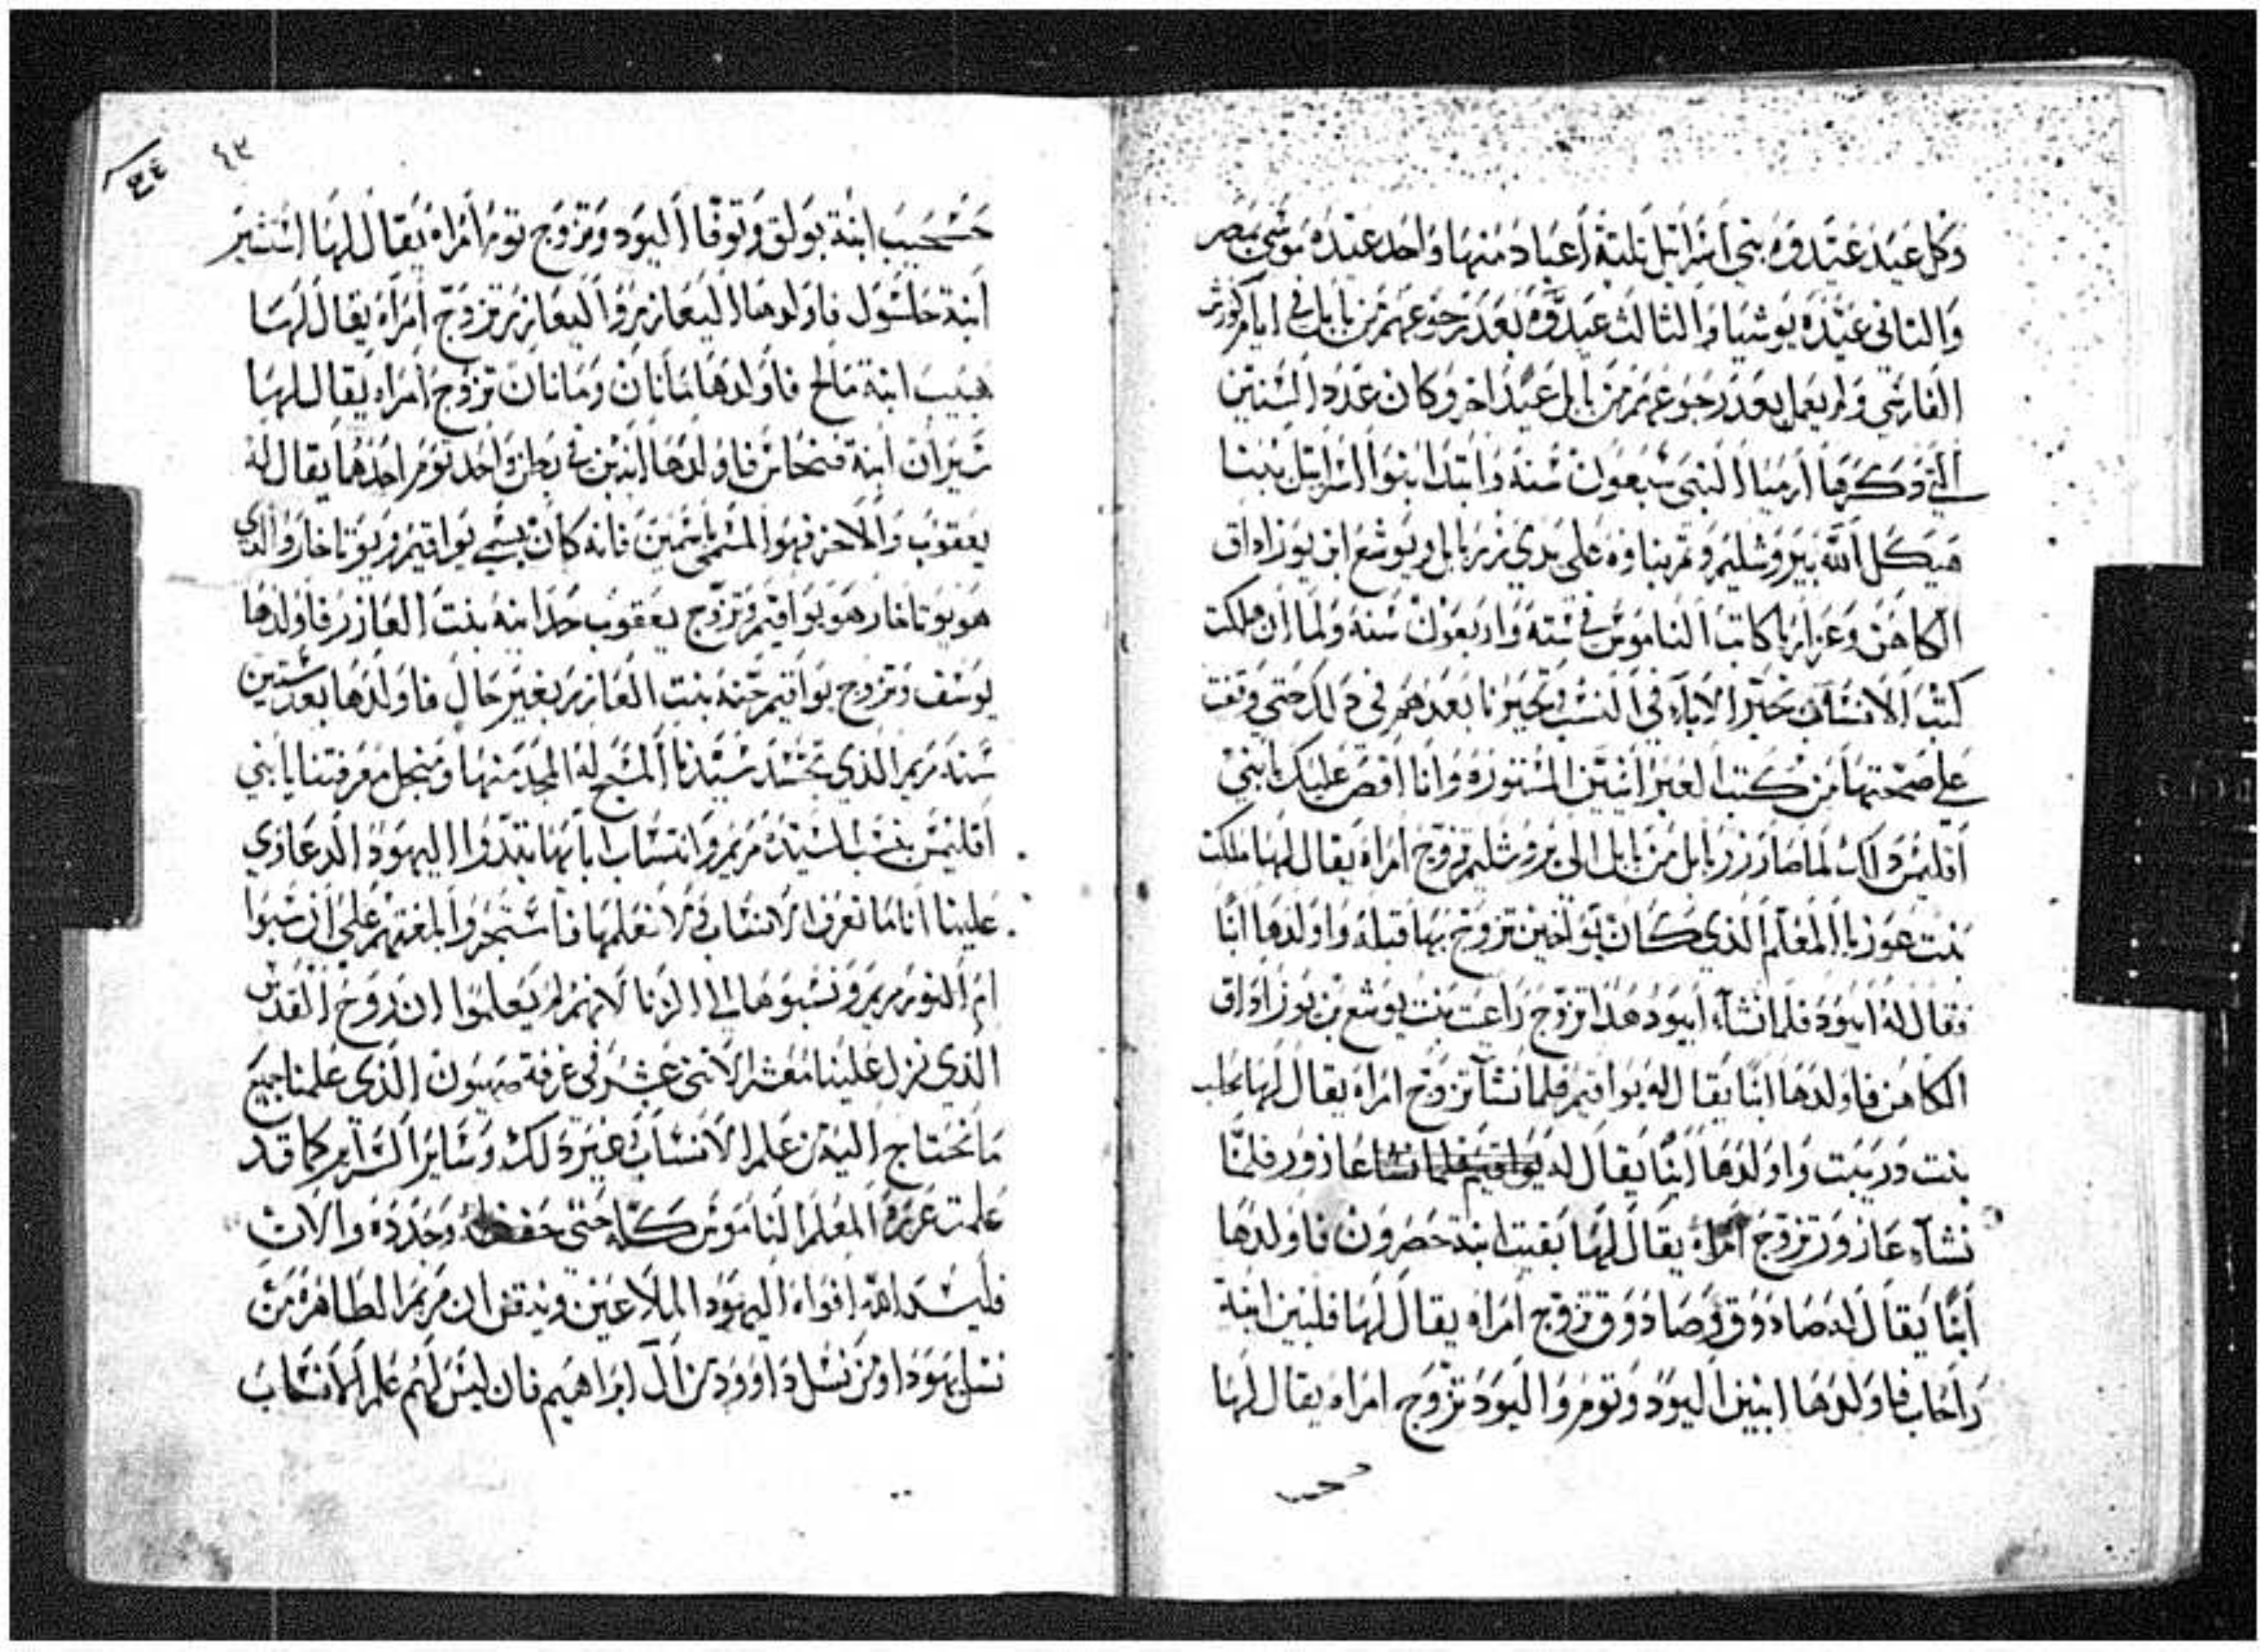 وكل عيد عيدوه بني اسرائيل ثلثة اعياد منها واحد عيده موسي بمصر
والثاني عيده يوشيا والثالث عيدوه بعد رجوعهم من بابل في ايام كورش
الفارسي ولم يعمل بعد رجوعهم من بابل عيدا اخر وكان عدد السنين
التي ذكرها ارميا النبي سبعون سنة وابتدا بنوا اسرائيل ببنا
هيكل الله بيروشليم وتم بناوه علي يدي زربابل ويوشع ابن يوزاداق
الكاهن وعزرا كاتب الناموس في سته واربعون سنه ولما ان هلكت
كتب الانساب تحير الاباء في النسب وتحيرنا بعدهم في ذلك حتي وقفت
علي صحتها من كتب العبرانيين المستوره وانا اقص عليك يابني
اقليمس ذلك لما صار زربابل من بابل الي يروشليم تزوج امراه يقال لها ملكت
بنت عوزيا المعلم الذي كان يواخين تزوج بها قبله واولدها ابنا
فقال له ابيود فلما نشاء ابيود هذا تزوج راعيت بنت يوشع بن يوزاداق
الكاهن فاولدها ابنا يقال له يواقيم فلما نشآ تزوج امراه يقال لها محلب
بنت ورييت واولدها ابنا يقال له يواقيم فلما نشا عازور فلما
نشآء عازور تزوج امراه يقال لها يقيت ابنة حصرون فاولدها
ابنا يقال له صادوق وصادوق تزوج امراه يقال لها فلبين ابنة
راحاب فاولدها ابنين اليود وتوم واليود تزوج امراه يقال لها
٤٣
٣٤
حسحيب ابنة بولق وتوفا اليود وتزوج توم امراه يقال لها
ابنة حلسول فاولدها اليعازر واليعازر تزوج امراه يقال لها
هبيب ابنة مالح فاولدها ماتان وماتان تزوج امراه يقال لها
ابنة فنحاس فاولدها ابنين في بطن واحد توم احدهما يقال له
يعقوب والاخر فهو المسمي باسمين فانه كان يسمي يواقيم ويوناخار والذي
هو يوناخار هو يواقيم وتزوج يعقوب حد ابنه بنت العازر فاولدها
يوسف وتزوج يواقيم حنه بنت العازر بغير حال فاولدها بعد ستين
سنة مريم الذي تجسد سيدنا المسيح له المجد منها ومنجل معرفتنا يابني
اقليمس بنسب السيده مريم وانتساب ابايها يبتدوا اليهود الدعاوي
علينا اننا ما نعرف الانساب ولا نعلمها فاستجروا لمغتهم علي ان سبوا
ام النور مريم ونسبوها الي الزنا لانهم لم يعلموا ان روح القدس
الذي نزل علينا معشر الاثني عشر في غرفة صهيون الذي علمنا جميع
ما نحتاج اليه من علم الانساب وغير ذلك وساير السراير كما قد
علمت عزره المعلم الناموس كله حتي حفظه وجدده والان
فليسد الله افواه اليهود الملاعين ويندقن ان مريم الطاهره من
نسل يهوذا ومن نسل داوود من آل ابراهيم فان ليس لهم علم الانساب